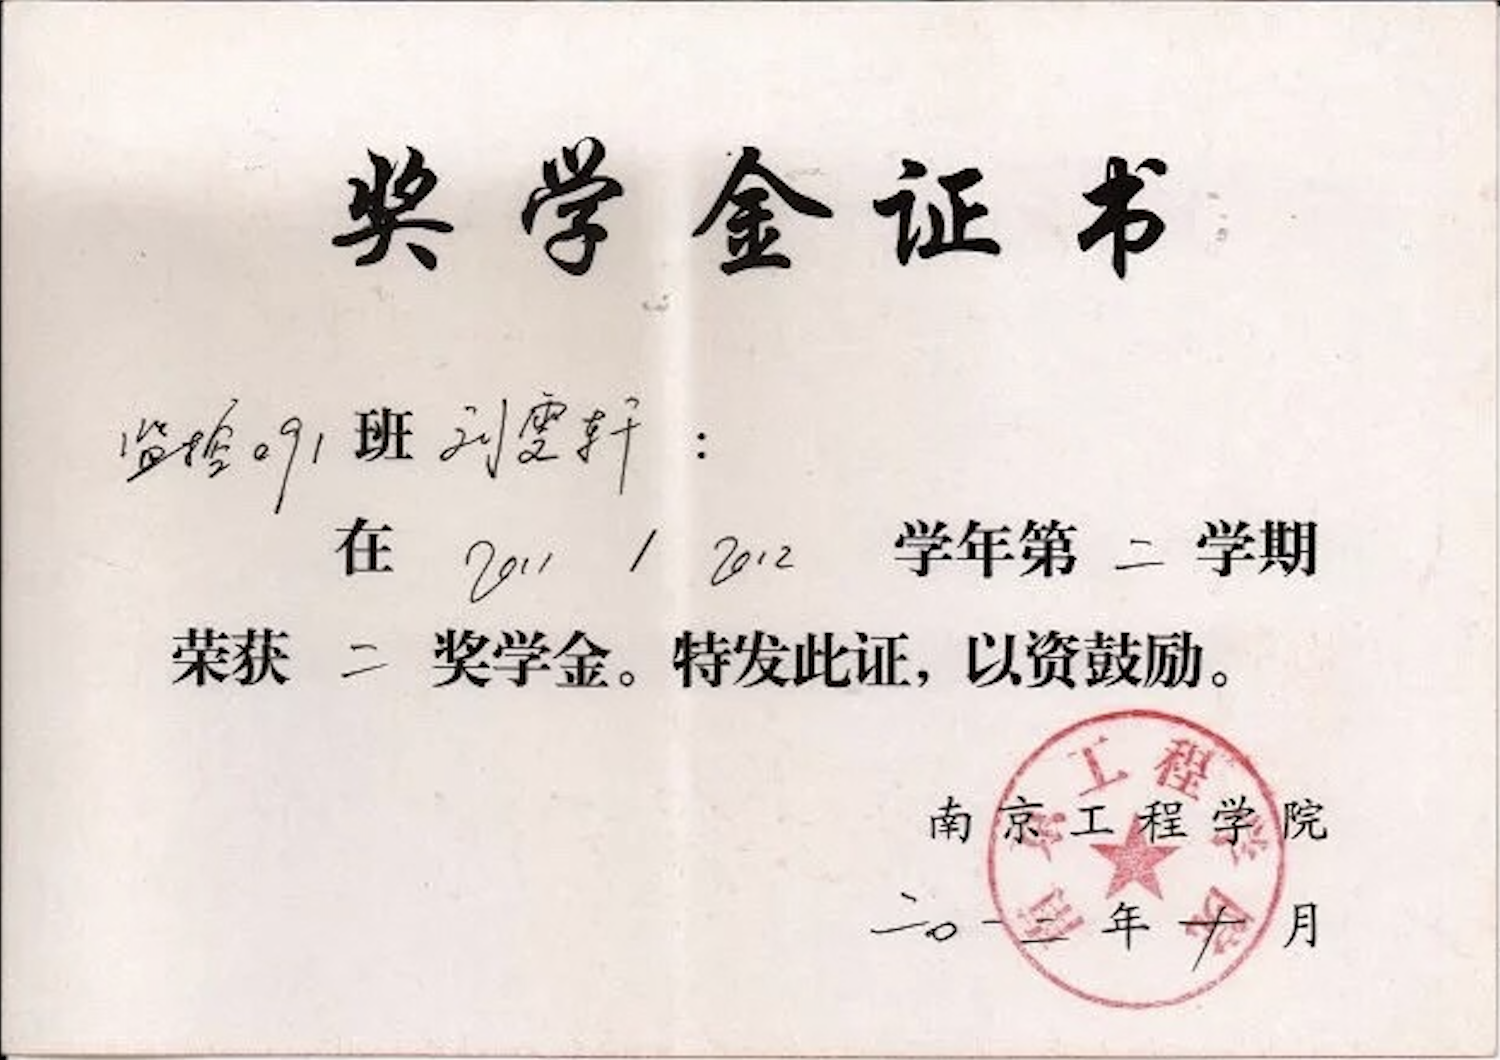 奖学金证书
监检091班刘雯轩：
在 2011 / 2012 学年第二学期
荣获二奖学金。特发此证，以资鼓励。
南京工程学院
二〇一二年十月
南京工程学院